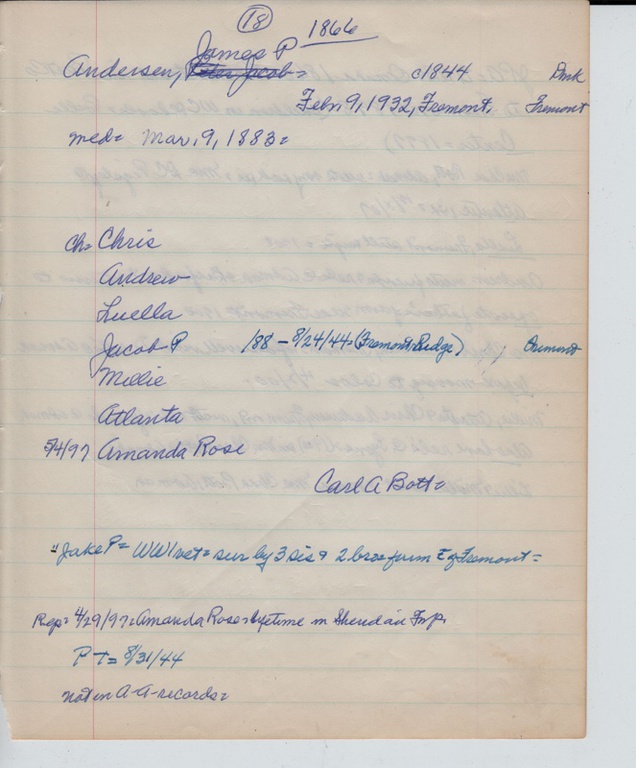 (18) 1866
James P
Andersen, Peter Jacob= c1844 Dmk
Feb. 9, 1932, Fremont. Fremont
med= Mar. 9, 1883=
ch= Chris
Andrew
Luella
Jacob P 188 - 8/24/44=(Fremont, Ridge) Fremont
Millie
Atlanta
5/4/97 Amanda Rose
Carl A Bott=
"Jake P= WW1 vet= sur by 3 sis & 2 bro= farm E of Fremont=
Rep= 4/29/97= Amanda Rose= in Sheridan Twp.
P T= 8/31/44
not in A-A-records=